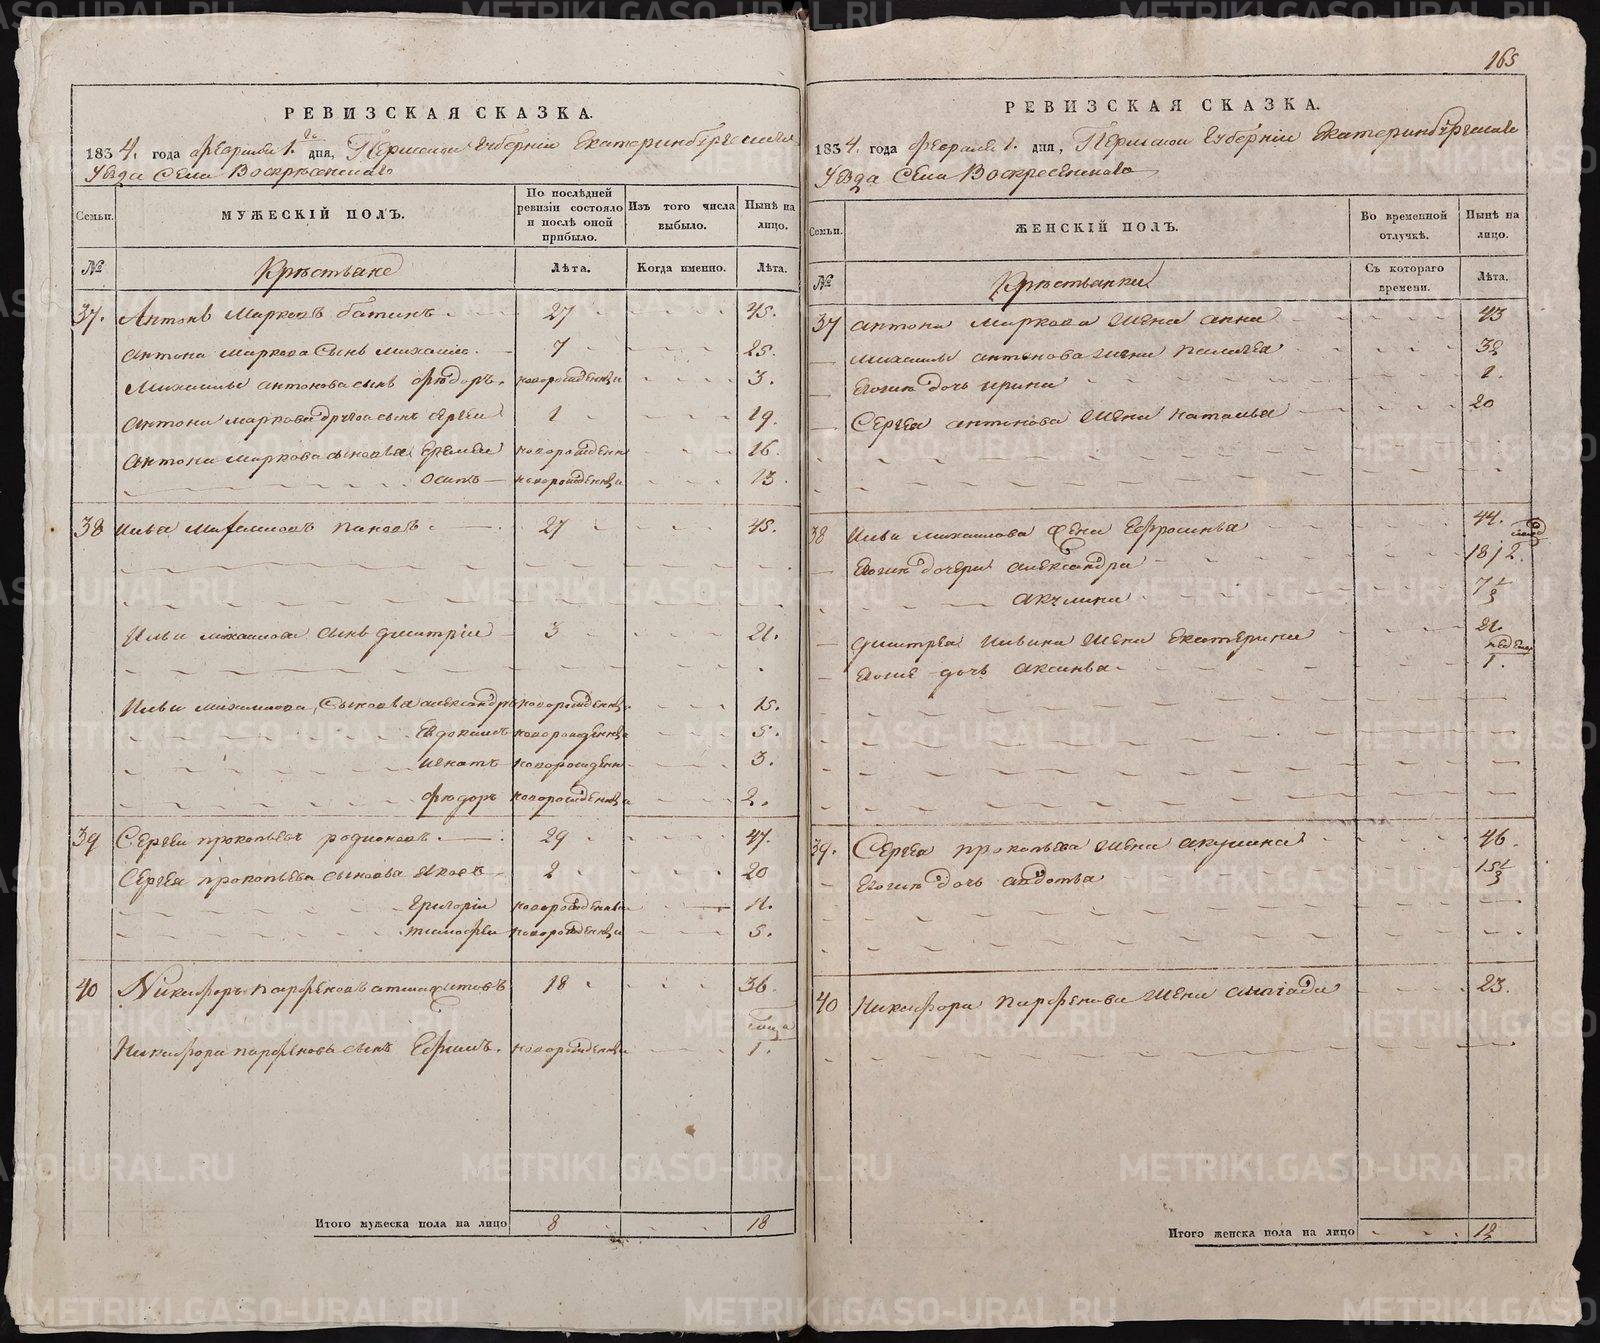 165
РЕВИЗСКАЯ СКАЗКА.
1834. года февраля 1. дня, Пермской губернии Екатеринбургскаго
Уезда Села Воскресенскаго
Семьи.
МУЖЕСКІЙ ПОЛЪ.
По послѣдней ревизіи состояло и послѣ оной прибыло.
Изъ того числа выбыло.
Нынѣ на лицо.
№
Крестьяне
Лѣта.
Когда именно.
Лѣта.
37. Антонъ Марковъ батинъ 27 45.
Антона Маркова сынъ Михаило. 7 25.
Михаилы антонова сынъ фёдоръ. новорожденный 3.
Антона Маркова другой сынъ сергей 1 19.
Антона Маркова сыновья еремей новорожден 16.
осипъ новорожденный 13.
38 Илья Михаиловъ пановъ 27 45.
Ильи михаилова сынъ дмитрій 3 21.
Ильи михаилова сыновья александръ новорожденны. 15.
Евдокимъ новорожденны 5.
игнатъ новорожденн 3.
фёдоръ новорожденны 2.
39 Сергеи прокопьевъ родионовъ. 29 47.
Сергея прокопьева сыновья Яковъ 2 20
Григорій новорожденны 11.
тимофеи новорожденны 5.
40 Никифоръ парфеновъ 18 36.
Никифора парфенова сынъ Ефимъ. новорожденны 1.
Итого мужеска пола на лицо 8 18
РЕВИЗСКАЯ СКАЗКА.
1834. года февраля 1. дня, Пермской губерніи Екатеринбургскаго
Уезда Села Воскресенскаго
Семьи.
ЖЕНСКІЙ ПОЛЪ.
Во временной отлучкѣ.
Нынѣ на лицо.
№
Крестьянки
Съ котораго времени.
Лѣта.
37 антона маркова жена анна 43
михаилы антонова жена палагея
Егоже дочь ирина 1.
Сергея антонова жена наталья 20
38 Ильи михаилова жена Ефросинья 44.
Егоже дочери александра
акулина
дмитрея ильина жена екатерина 21.
Егоже дочь аксинья. 1.
39. Сергея прокопьева жена акулина 46.
Егоже дочь авдотья
40 Никифора парфенова жена 23.
Итого женска пола на лицо 12
METRIKI.GASO-URAL.RU